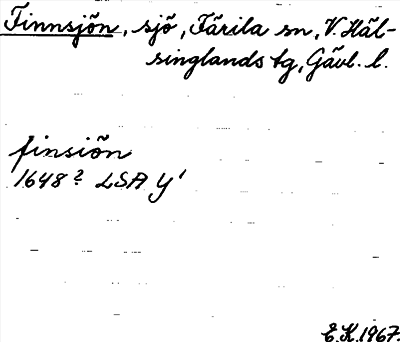 Finnsjön, sjö, Färila sn, V. Häl-
singlands tg, Gävl. l.
finsiön
1648? LSA Y'
E.K. 1967.